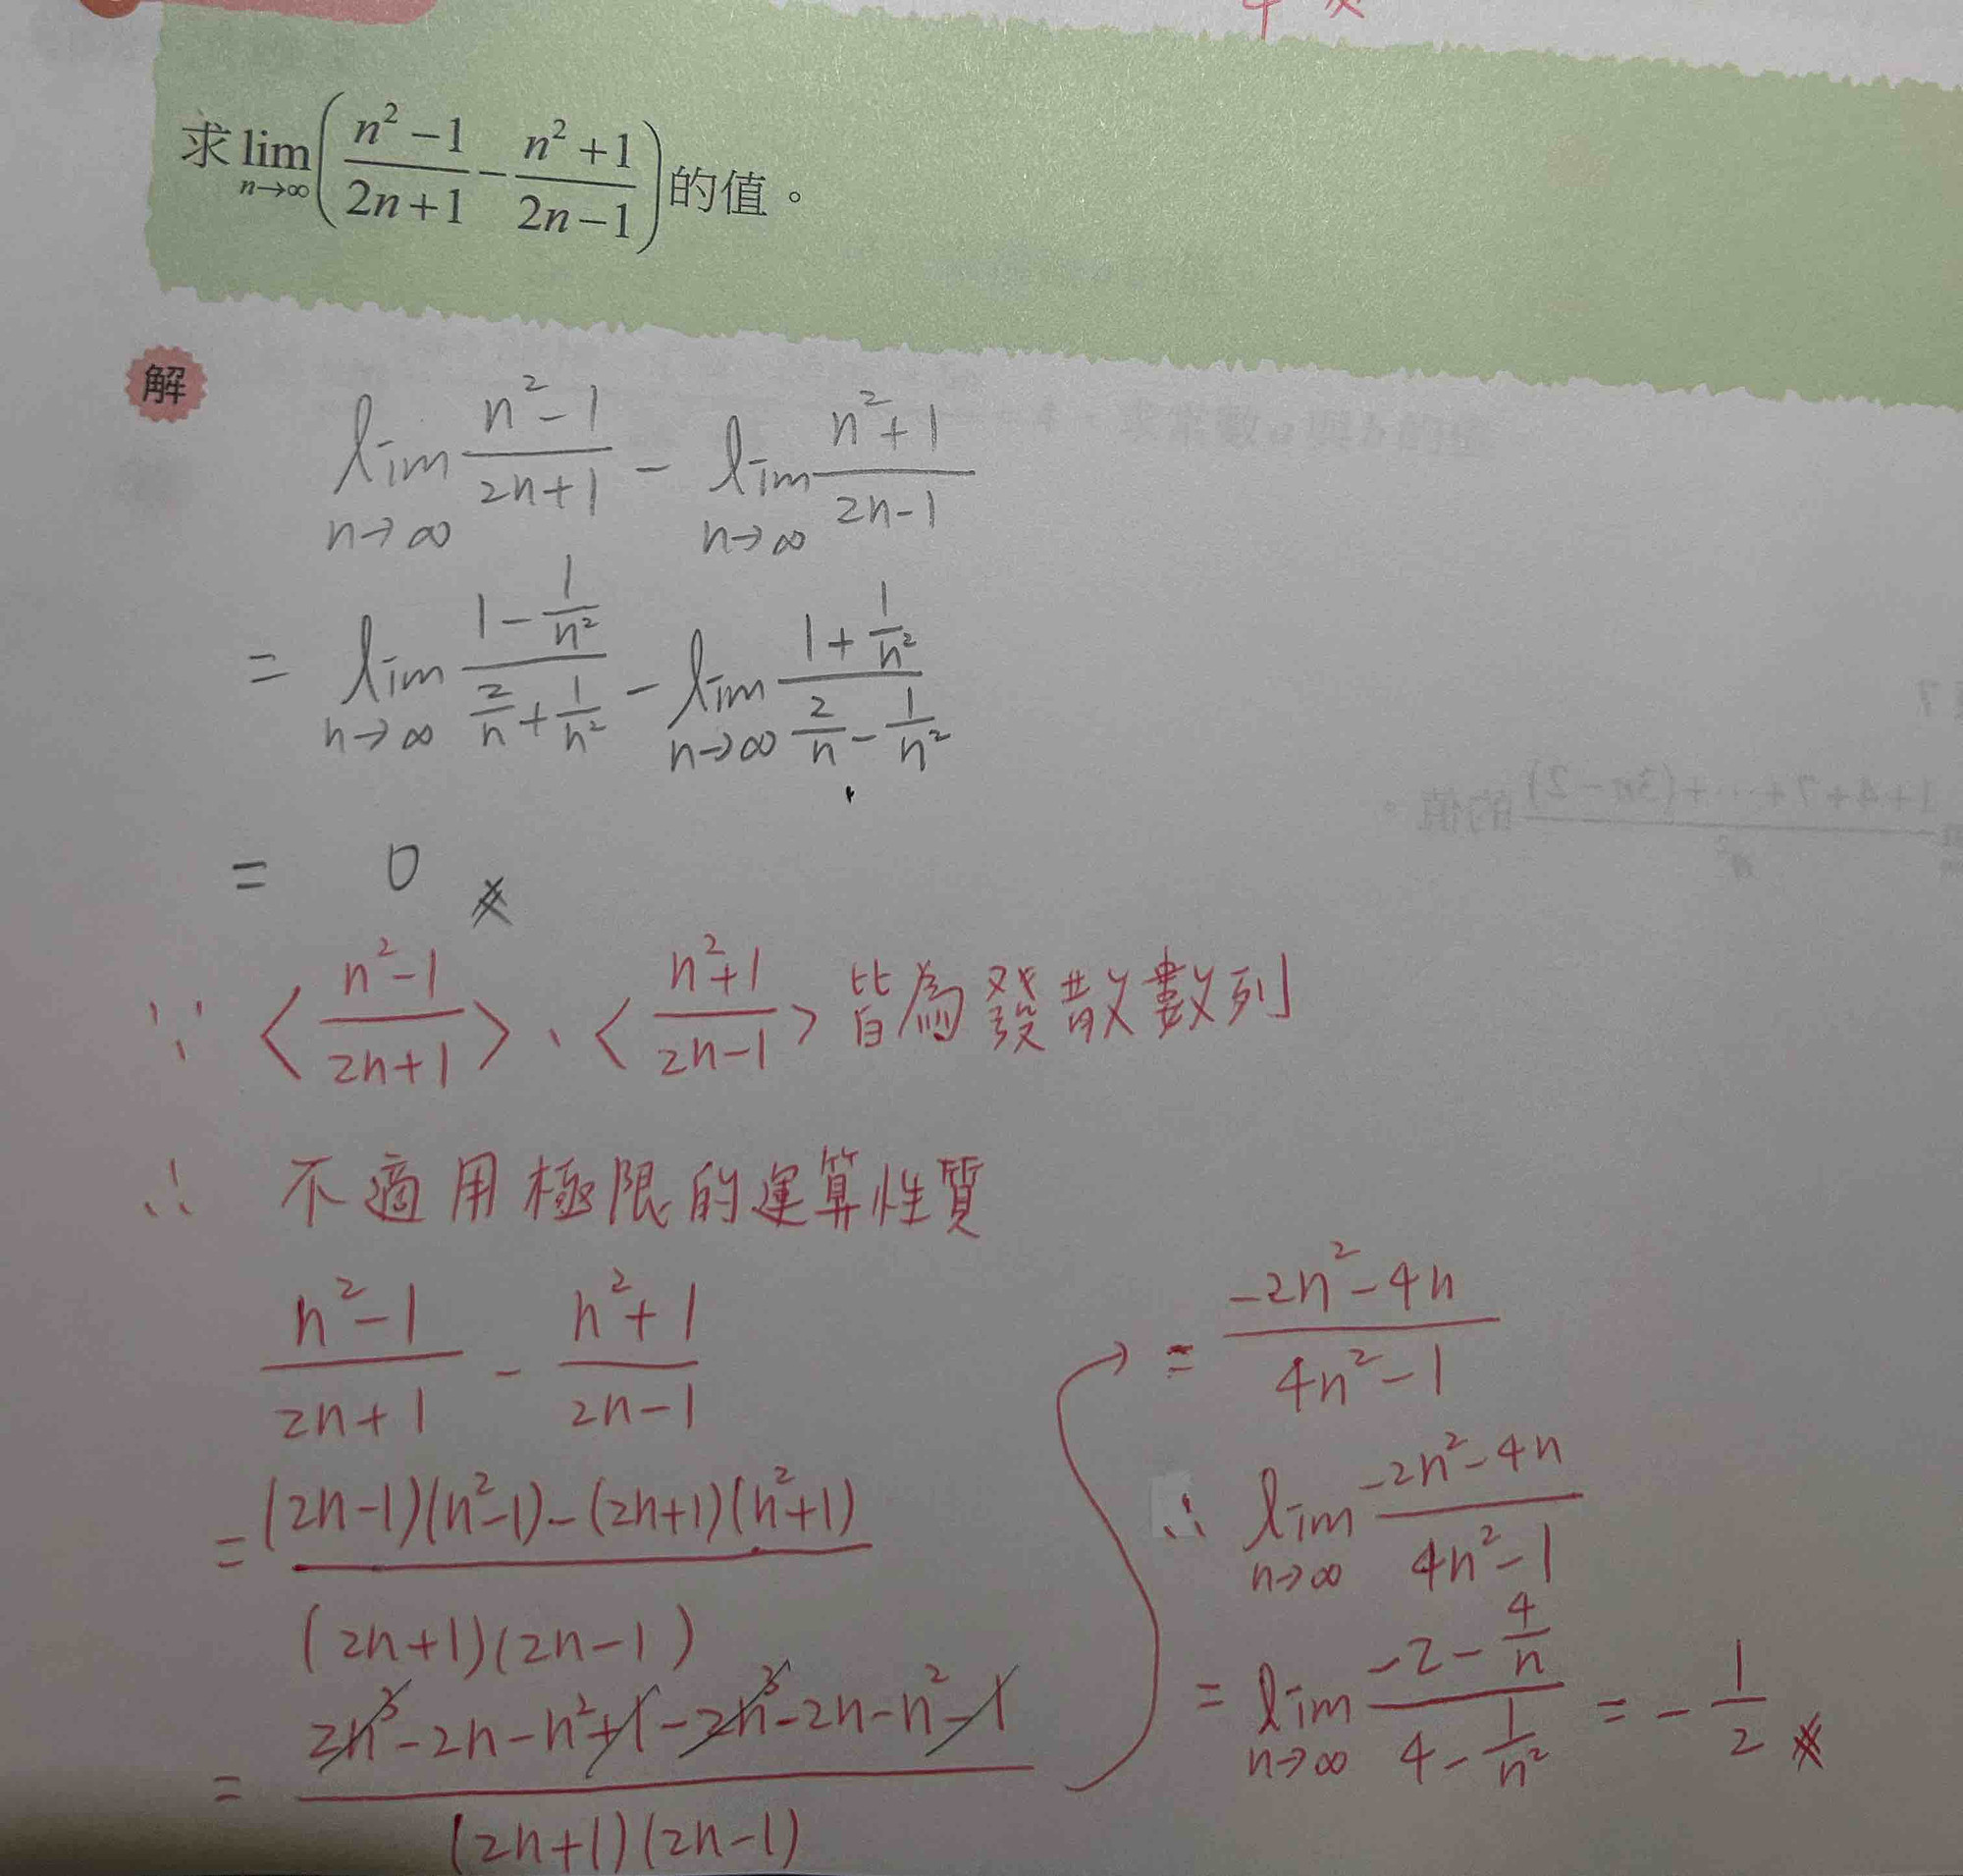 求 lim_{n→∞} ( (n²−1)/(2n+1) − (n²+1)/(2n−1) ) 的值。
解
lim_{n→∞} (n²−1)/(2n+1) − lim_{n→∞} (n²+1)/(2n−1)
= lim_{n→∞} (1−1/n²)/(2/n+1/n²) − lim_{n→∞} (1+1/n²)/(2/n−1/n²)
= 0
∵ 〈(n²−1)/(2n+1)〉、〈(n²+1)/(2n−1)〉皆為發散數列
∴ 不適用極限的運算性質
(n²−1)/(2n+1) − (n²+1)/(2n−1)
= ((2n−1)(n²−1)−(2n+1)(n²+1))/((2n+1)(2n−1))
= (2n³−2n−n²+1−2n³−2n−n²−1)/((2n+1)(2n−1))
= (−2n²−4n)/(4n²−1)
∴ lim_{n→∞} (−2n²−4n)/(4n²−1)
= lim_{n→∞} (−2−4/n)/(4−1/n²) = −1/2